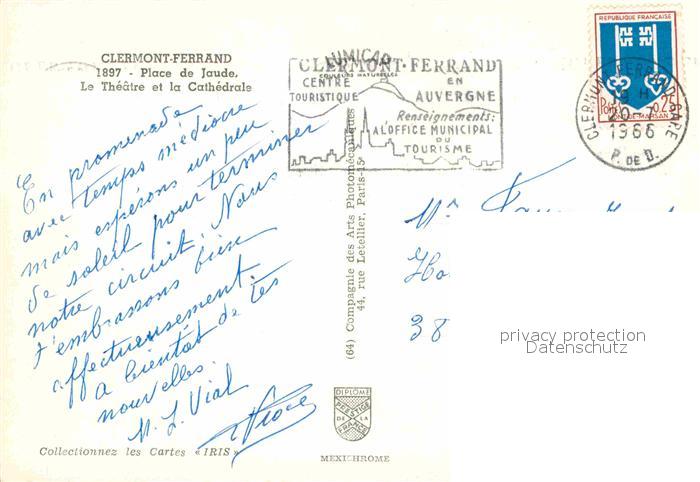 CLERMONT-FERRAND
1897 - Place de Jaude.
Le Théâtre et la Cathédrale
En promenade
avec temps médiocre
mais espérons un peu
de soleil pour terminer
notre circuit. Nous
t'embrassons bien
affectueusement.
A bientôt de tes
nouvelles.
M. L. Vial
Collectionnez les Cartes « IRIS »
LUMICAP
COULEURS NATURELLES
CLERMONT-FERRAND
CENTRE
TOURISTIQUE
EN
AUVERGNE
Renseignements:
A L'OFFICE MUNICIPAL
DU
TOURISME
(64) Compagnie des Arts Photomécaniques
44, rue Letellier, Paris-15e
DIPLOME
PRESTIGE
DE LA
FRANCE
MEXICHROME
REPUBLIQUE FRANÇAISE
0,25
MONT-DE-MARSAN
CLERMONT-FERRAND-GARE
19 H
20-7
1966
P. DE D.
Mr
38
privacy protection
Datenschutz